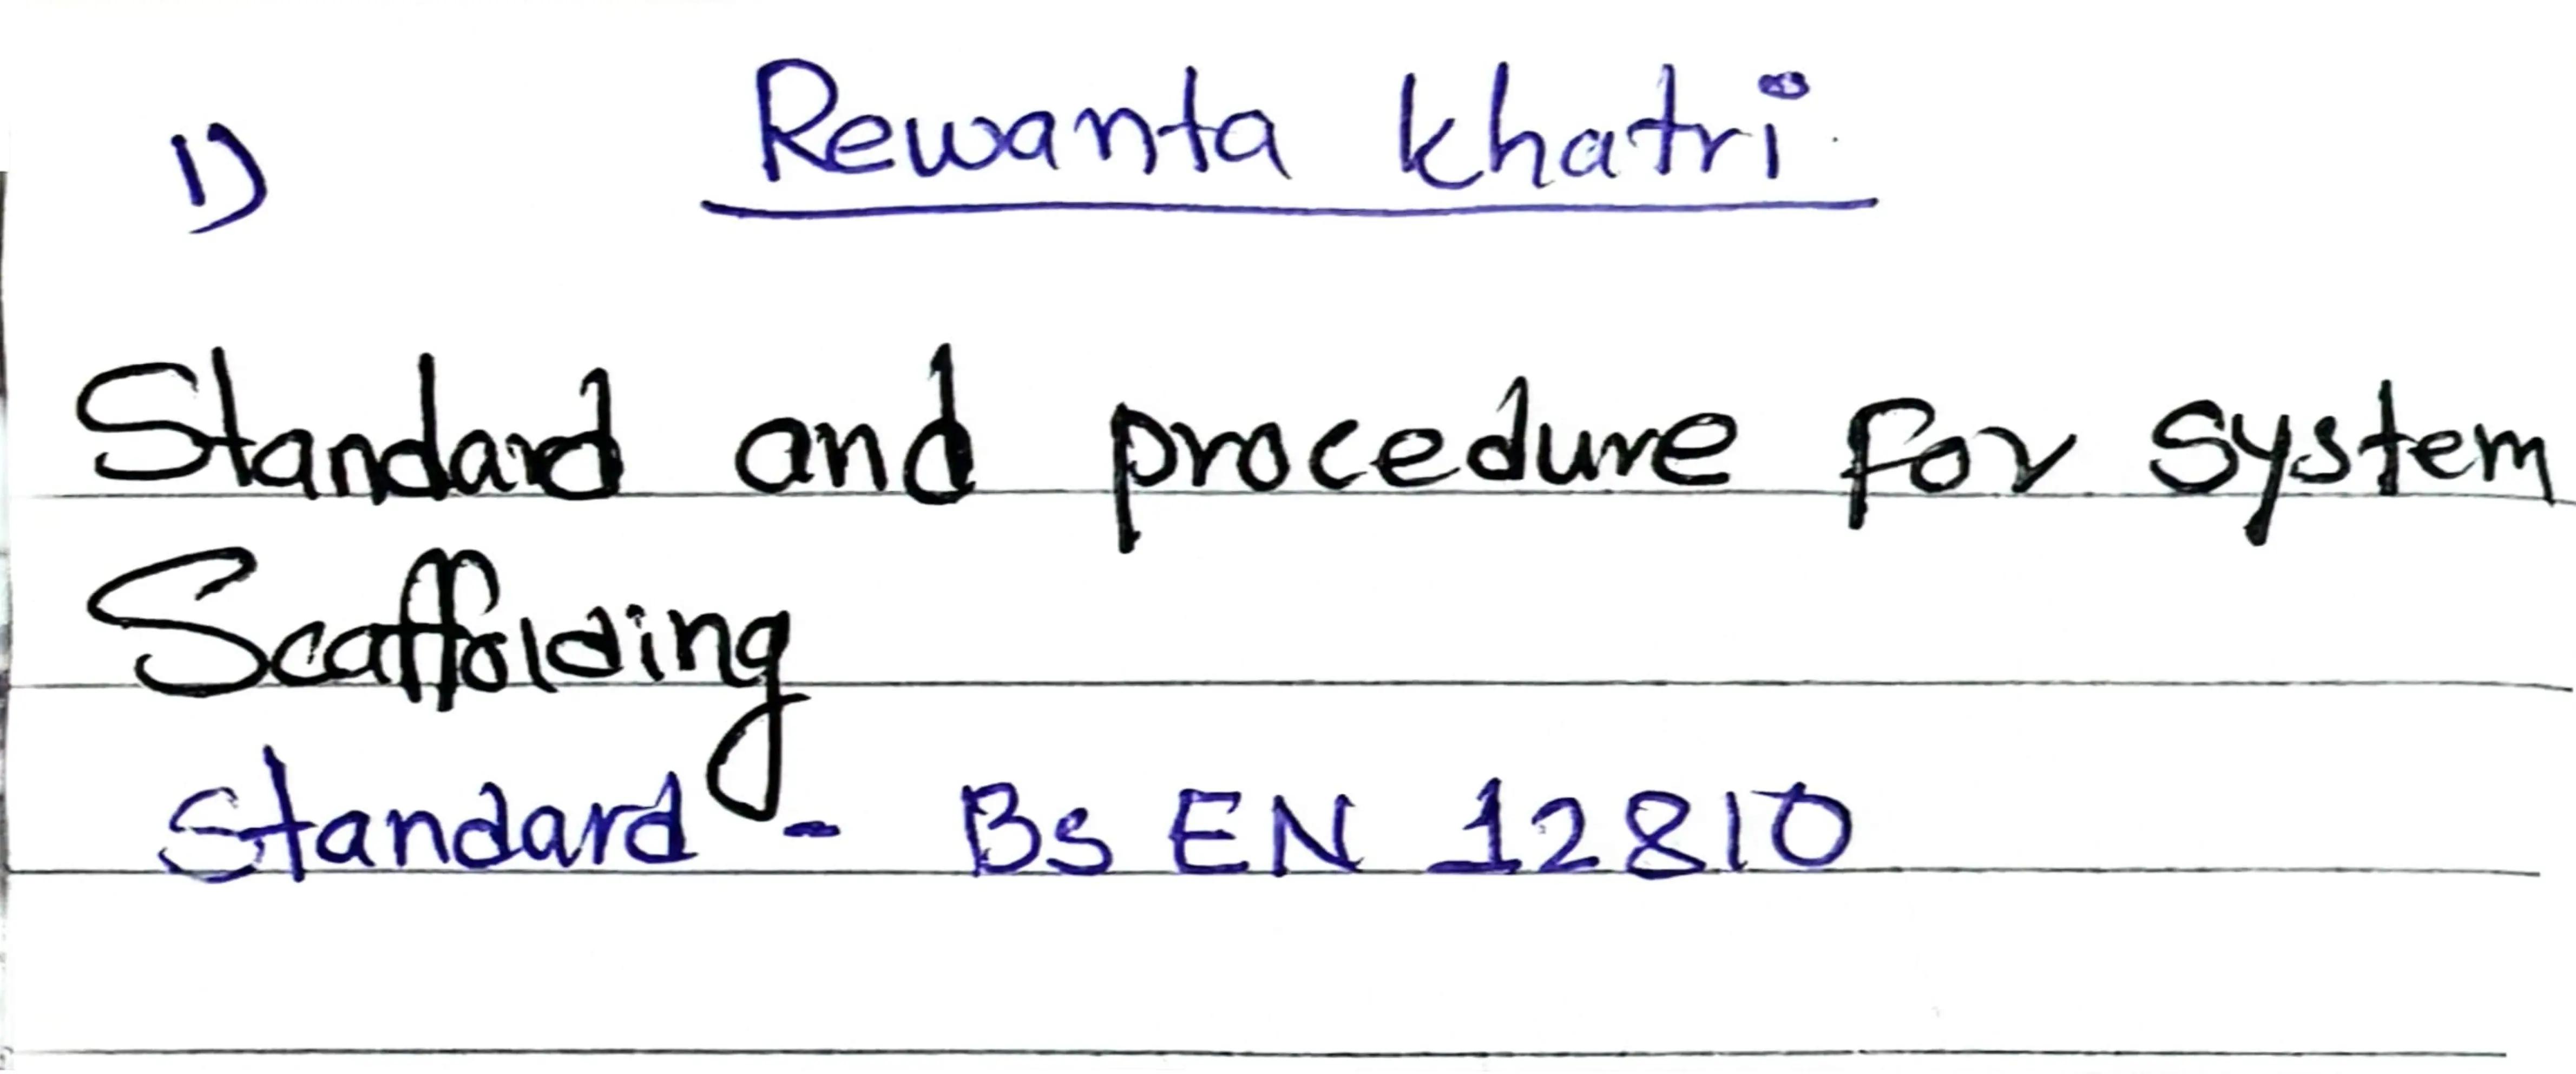 1) Rewanta khatri
Standard and procedure for system
Scaffolding
Standard - Bs EN 12810